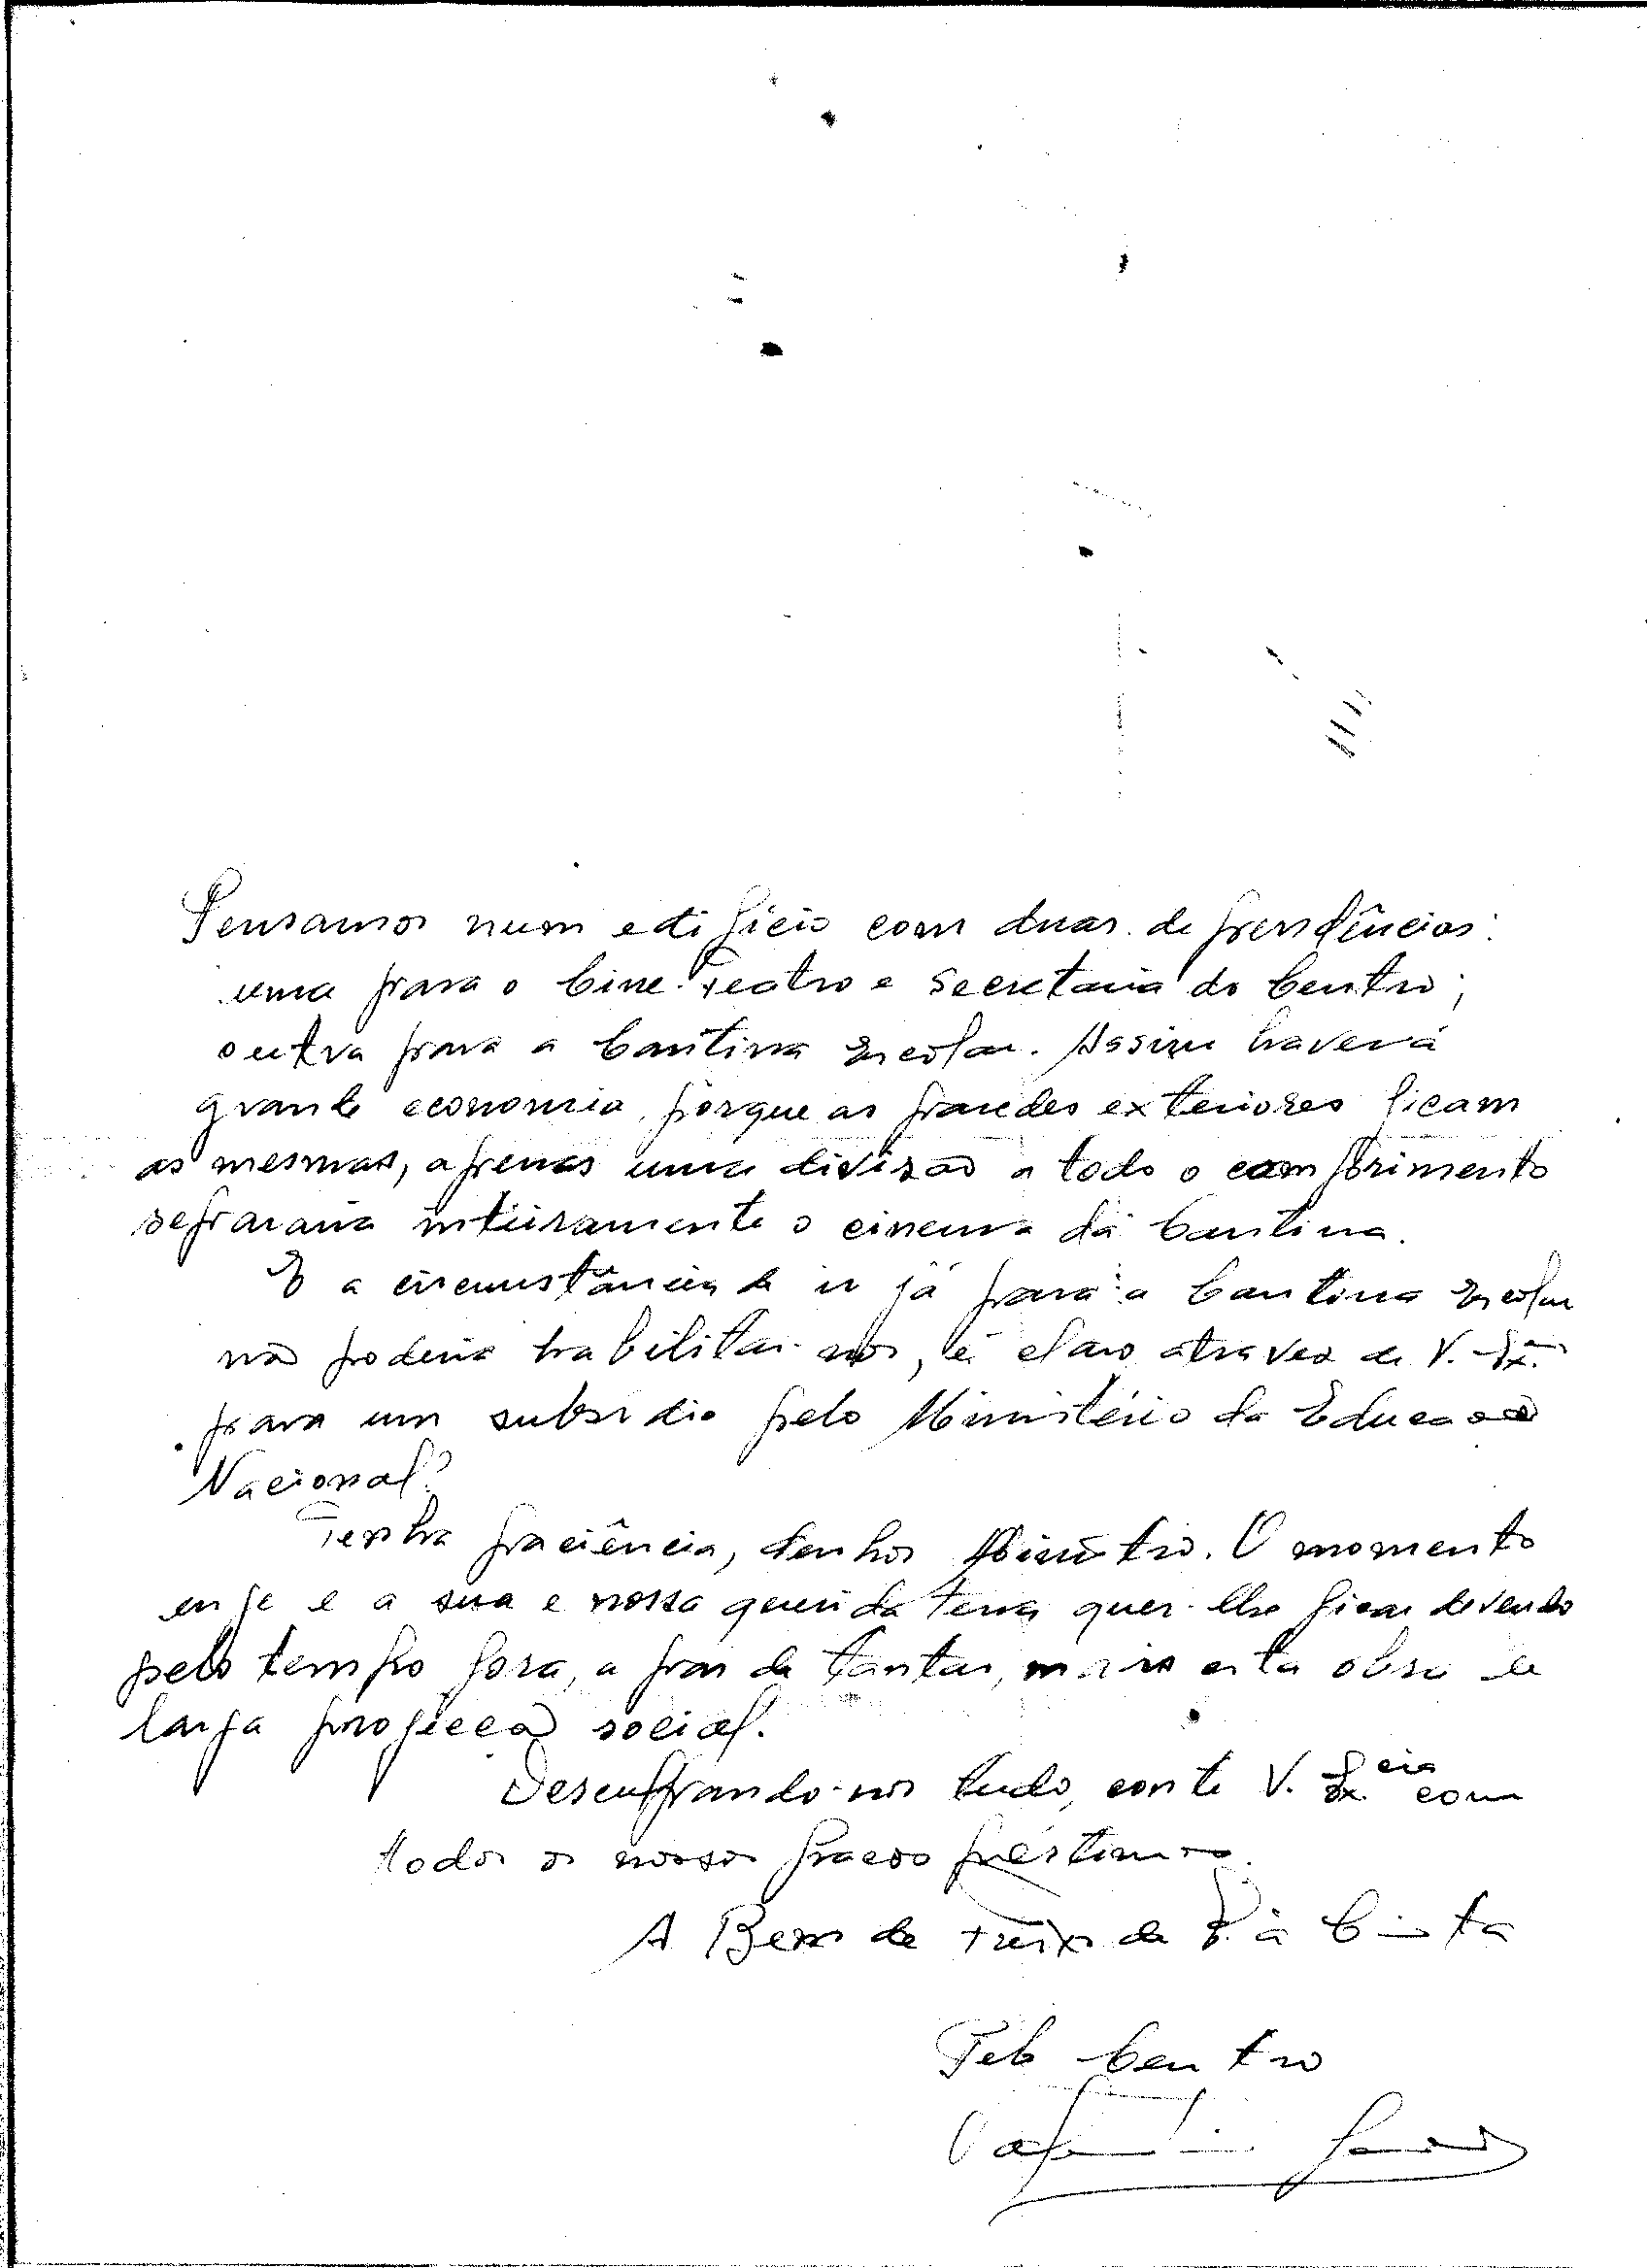 Pensamos num edifício com duas dependências:
uma para o Cine-Teatro e Secretaria do Centro;
outra para a Cantina Escolar. Assim haverá
grande economia, porque as paredes exteriores ficam
as mesmas, apenas uma divisão a todo o comprimento
separaria inteiramente o cinema da Cantina.
E a circunstância de ir já para a Cantina Escolar
não poderia habilitar-nos, é claro, através de V. Ex.ª
para um subsídio pelo Ministério da Educação
Nacional?
Tenha paciência, Senhor Ministro. O momento
urge e a sua e nossa querida terra quer-lhe ficar devendo
pelo tempo fora, a par de tantas, mais esta obra de
larga projecção social.
Desculpando-nos tudo, conte V. Ex.cia com
todos os nossos fracos préstimos.
A Bem de Freixo de E. à Cinta
Pelo Centro